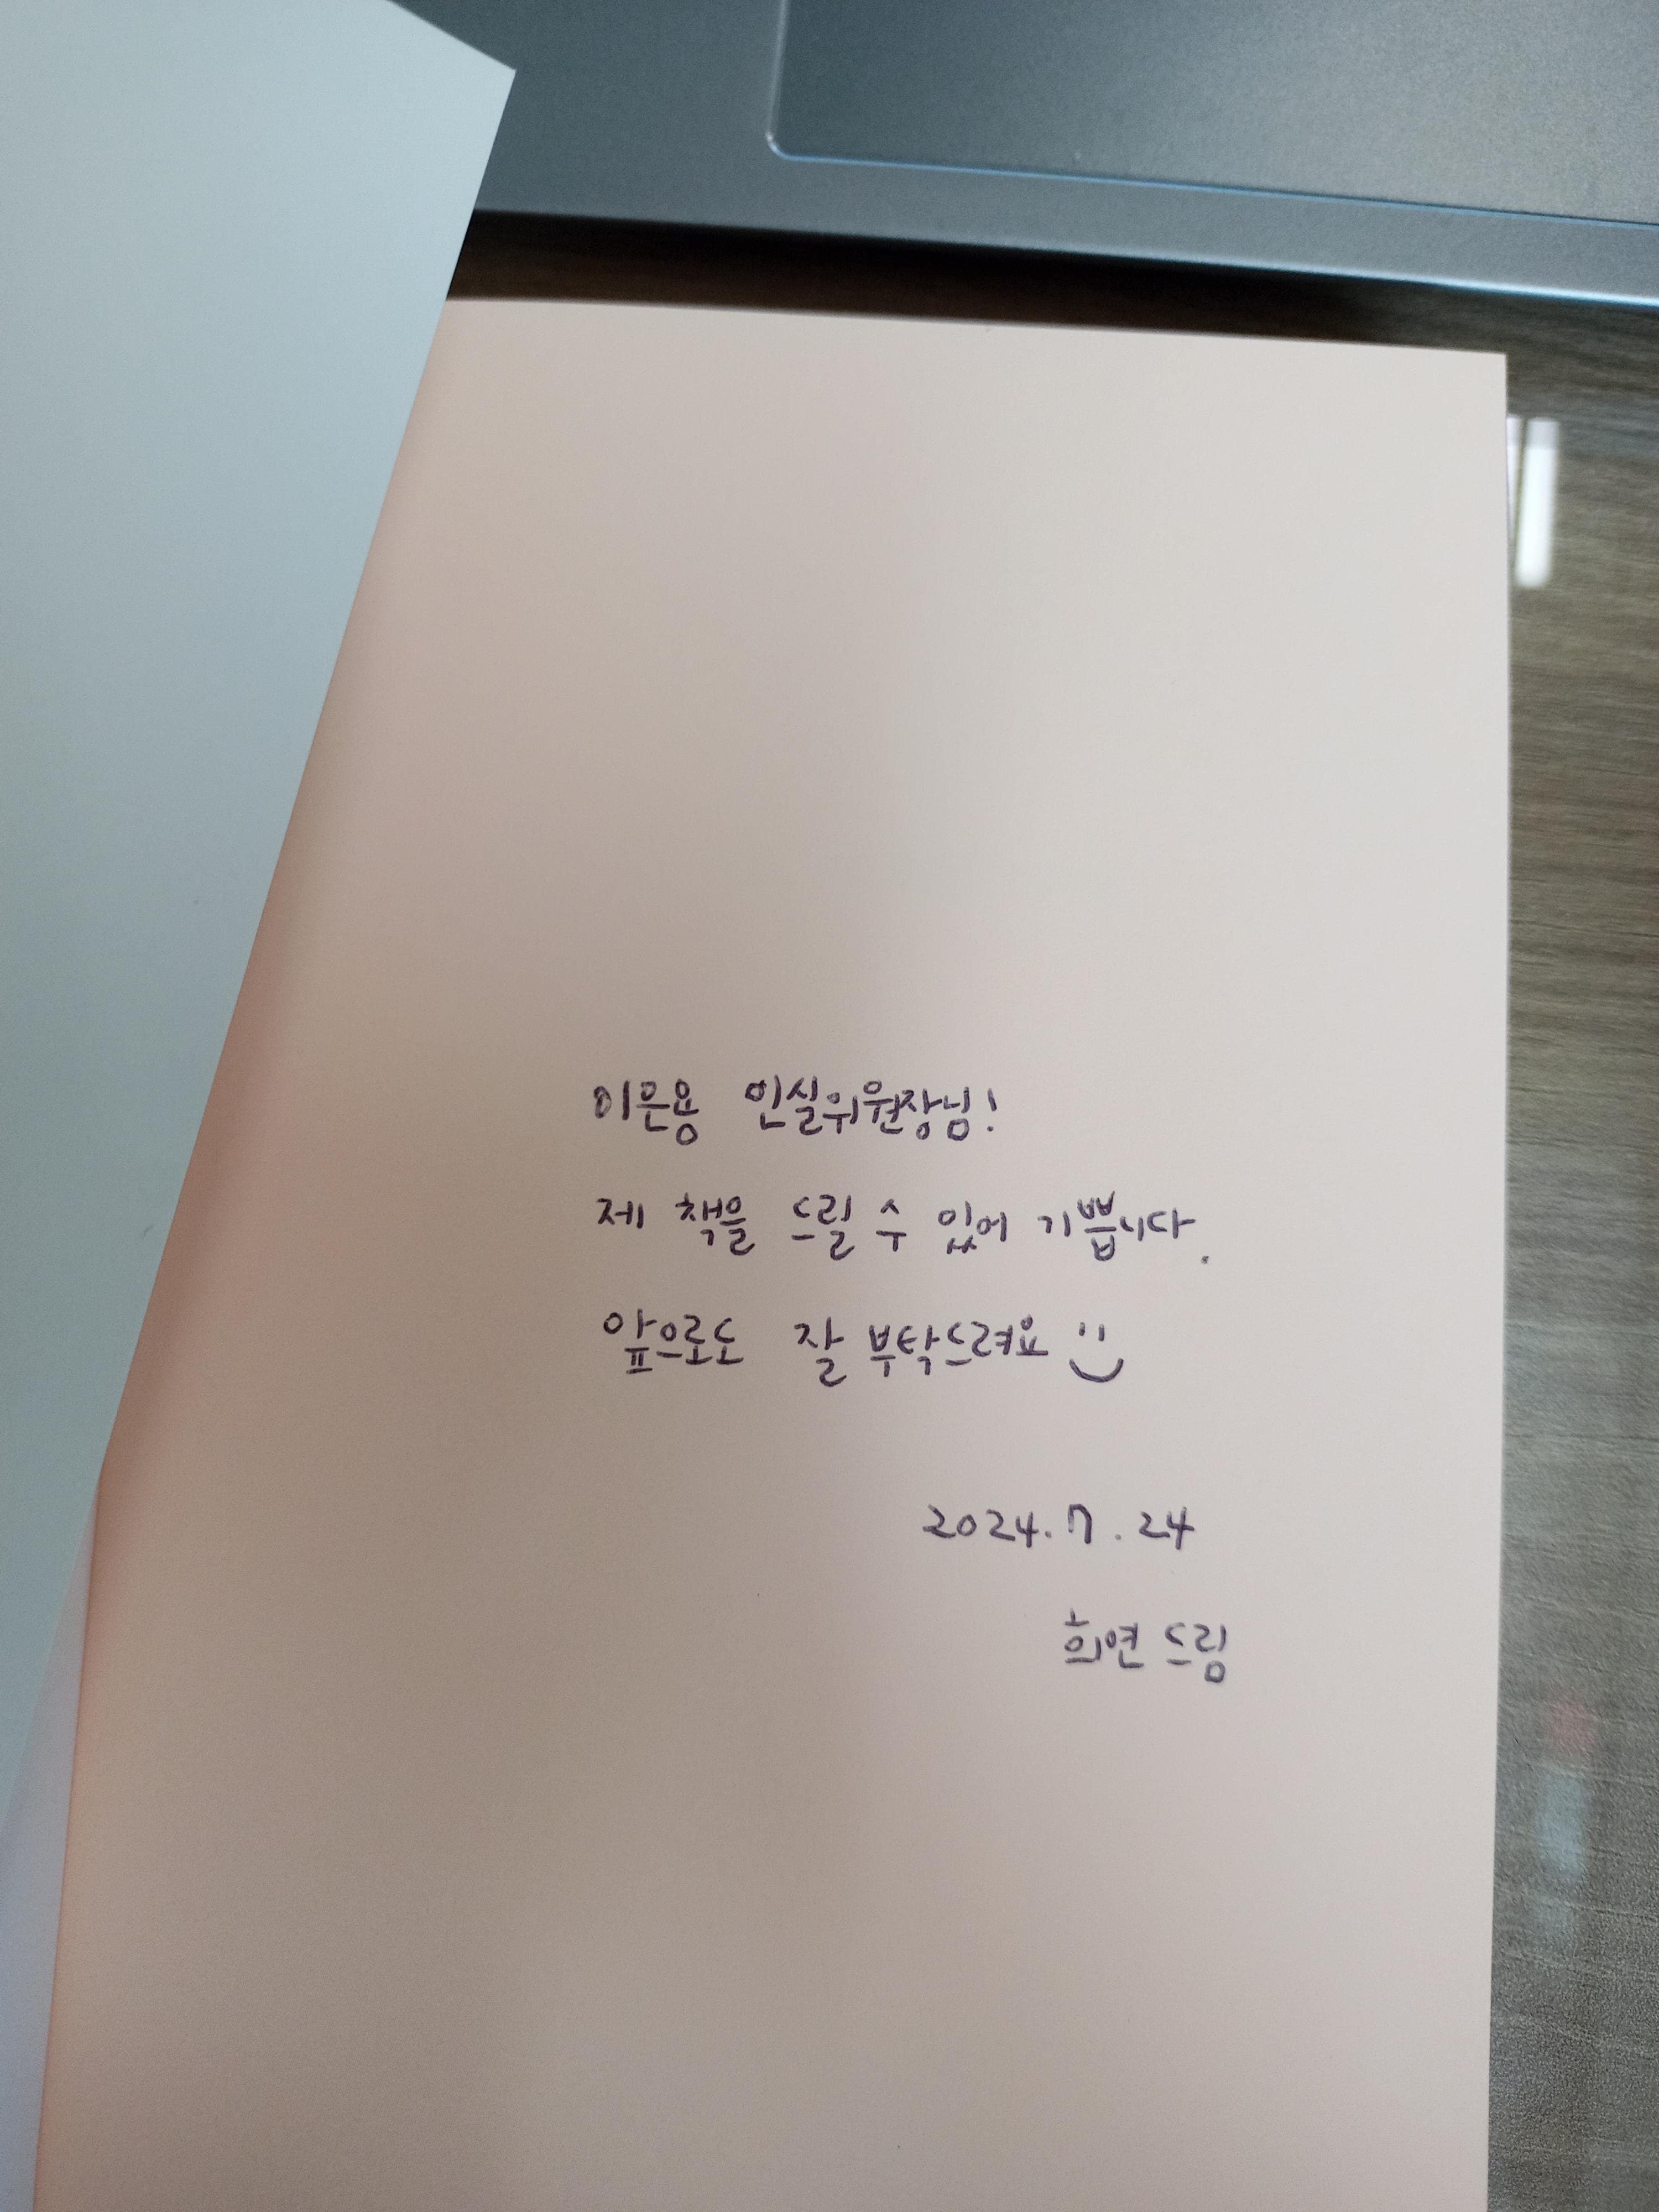 이은용 민실위원장님!
제 책을 드릴 수 있어 기쁩니다.
앞으로도 잘 부탁드려요 :)
2024. 7. 24
희연 드림